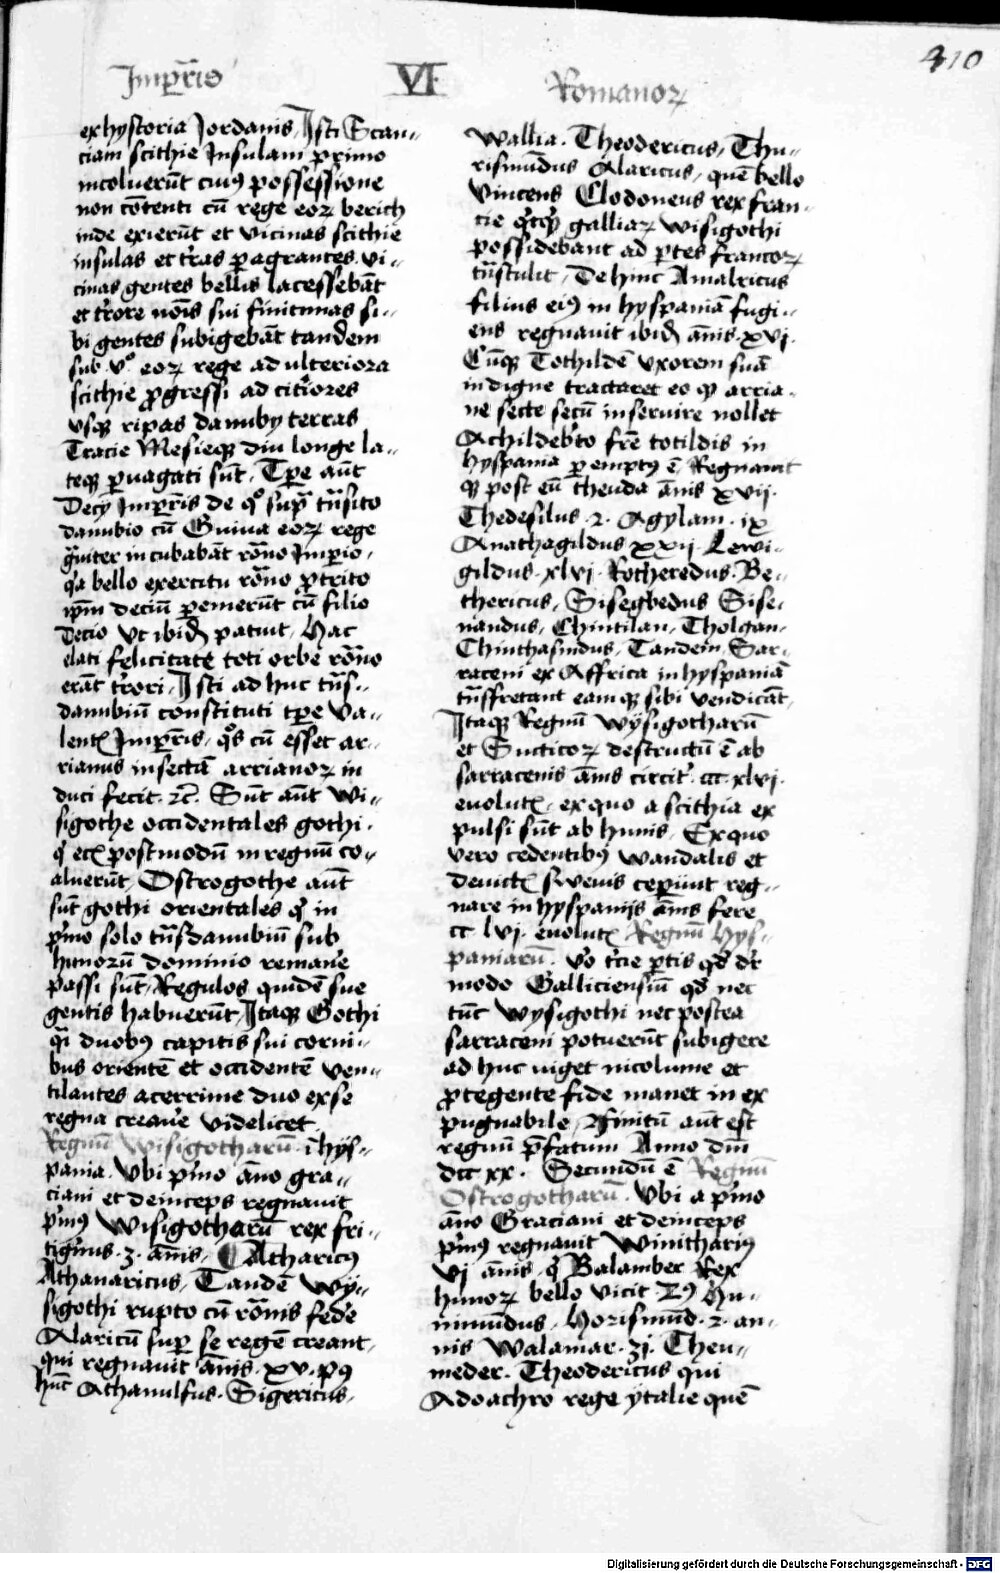 Imperis VI Romanoꝝ
410
ex hystoria Jordanis Isti Scan-
ciam scithie Insulam primo
incoluerūt cuiꝯ possessione
non cōtenti cū rege eoꝝ berich
inde exierūt et vicinas scithie
insulas et tr̄as ꝑagrantes vi-
cinas gentes bellis lacessebāt
et tr̄ore nōis sui finitimas si-
bi gentes subigebāt tandem
sub vº eoꝝ rege ad ulteriora
scithie ꝓgressi ad citiores
vsqꝫ ripas danuby terras
Tracie Mesieqꝫ diu longe la-
teqꝫ ꝑuagati sūt. Tꝑe aūt
Decij Imꝑis de qº supͣ tūsito
danubio cū Guiua eoꝝ rege
gͣuiter incubabāt rōno Imꝑio,
qͣ bello exercitu rōno ꝓtrito
ipm̄ deciū ꝑemerūt cū filio
Decio vt ibid̄ patuit, Hac
elati felicitate toti orbe rōno
erāt tr̄rori. Isti ad huc tūs-
danubiū constituti tꝑe va-
lentꝭ Imꝑis, qͦs cū esset ar-
rianus in sectā arrianoꝝ in
duci fecit. ꝛc̄. Sūt aūt Wi-
sigothe occidentales gothi.
qͥ ecꝭ postmodū in regnū co-
aluerūt, Ostrogothe aūt
sūt gothi orientales qͥ in
pͥmo solo tūsdanubiū sub
hunorū dominio remāȩ
passi sūt, Regulos quidē sue
gentis habuerūt, Itaqꝫ Gothi
qͣi duobꝯ capitis sui corni-
bus orientē et occidentē ven-
tilantes acerrime duo ex se
regna creaue videlicet
Regnū Wisigotharū. ī hys-
pania. Vbi pͥmo āno gra-
ciani et deinceps regnauit
pͥmꝯ Wisigotharū rex fri-
tigͥnus. 3. ānis, Atharicꝯ
Athanaricus, Tandē Wy-
sigothi rupto cū rōnis fede
Alaricū suꝑ se regē creant,
qui regnauit ānis. xv. pꝯ
hūc Athaulfus. Sigericus.
Wallia. Theodericus, Thu-
rismūdus Alaricus, quē bello
vincens Clodoneus rex fran-
cie qͥcqͥd galliaꝝ Wisigothi
possidebant ad ꝑtes francoꝝ
tūstulit, Dehinc Amalricus
filius eiꝯ in hyspaniā fugi-
ens regnauit ibid̄ ānis. xvj.
Cūqꝫ Tothildē vxorem suā
indigne tractaret eo qꝫ arria-
ne secte secū inseruire nollet
A childebͭto frē totildis in
hyspania ꝑemptꝯ ē Regnauit
qꝫ post eū theuda ānis xvij.
Thedesilus. 2. Agylam. ix
Anathagildus xxij Lewi-
gildus. xlvj. Rotheredus. Be-
thericus, Sisegbedus Sise-
nandus, Chintilan, Tholgan-
Chinthasindus, Tandem Sar-
raceni ex Affrica in hyspaniā
tūsfretant eamqꝫ sibi vendicāt,
Itaqꝫ Regnū Wysigotharū
et Sueticoꝝ destructū ē ab
sarracenis ānis circitͥ. ccc xlvj.
euolutꝭ, ex quo a scithia ex
pulsi sūt ab hunis, Ex quo
vero cedentibꝯ wandalis et
deuictꝭ swenis ceperunt reg-
nare in hyspanijs ānis fere
cc lvj. euolutꝭ Regnū Hys-
paniarū. Vͦo tͥcie ꝑtis qd̄ dr̄
modo Galliciensiū qd̄ nec
tūc wysigothi nec postea
sarraceni potuerūt subigere
ad huc uiget incolume et
ꝓtegente fide manet in ex
pugnabile, Finitū aūt est
regnū p̄fatum Anno dm̄
dcc xx. Secundū ē Regnū
Ostrogotharū. Vbi a pͥmo
āno Graciani et deinceps
pͥmꝯ regnauit Winithariꝯ
vj ānis, qͥ Balamber Rex
hunoꝝ bello vicit Hu-
nimundus, Horismūd. 2. an-
nis Walamar. 31. Theu-
meder. Theodericus qui
Adoachro rege ytalie quē
Digitalisierung gefördert durch die Deutsche Forschungsgemeinschaft - DFG